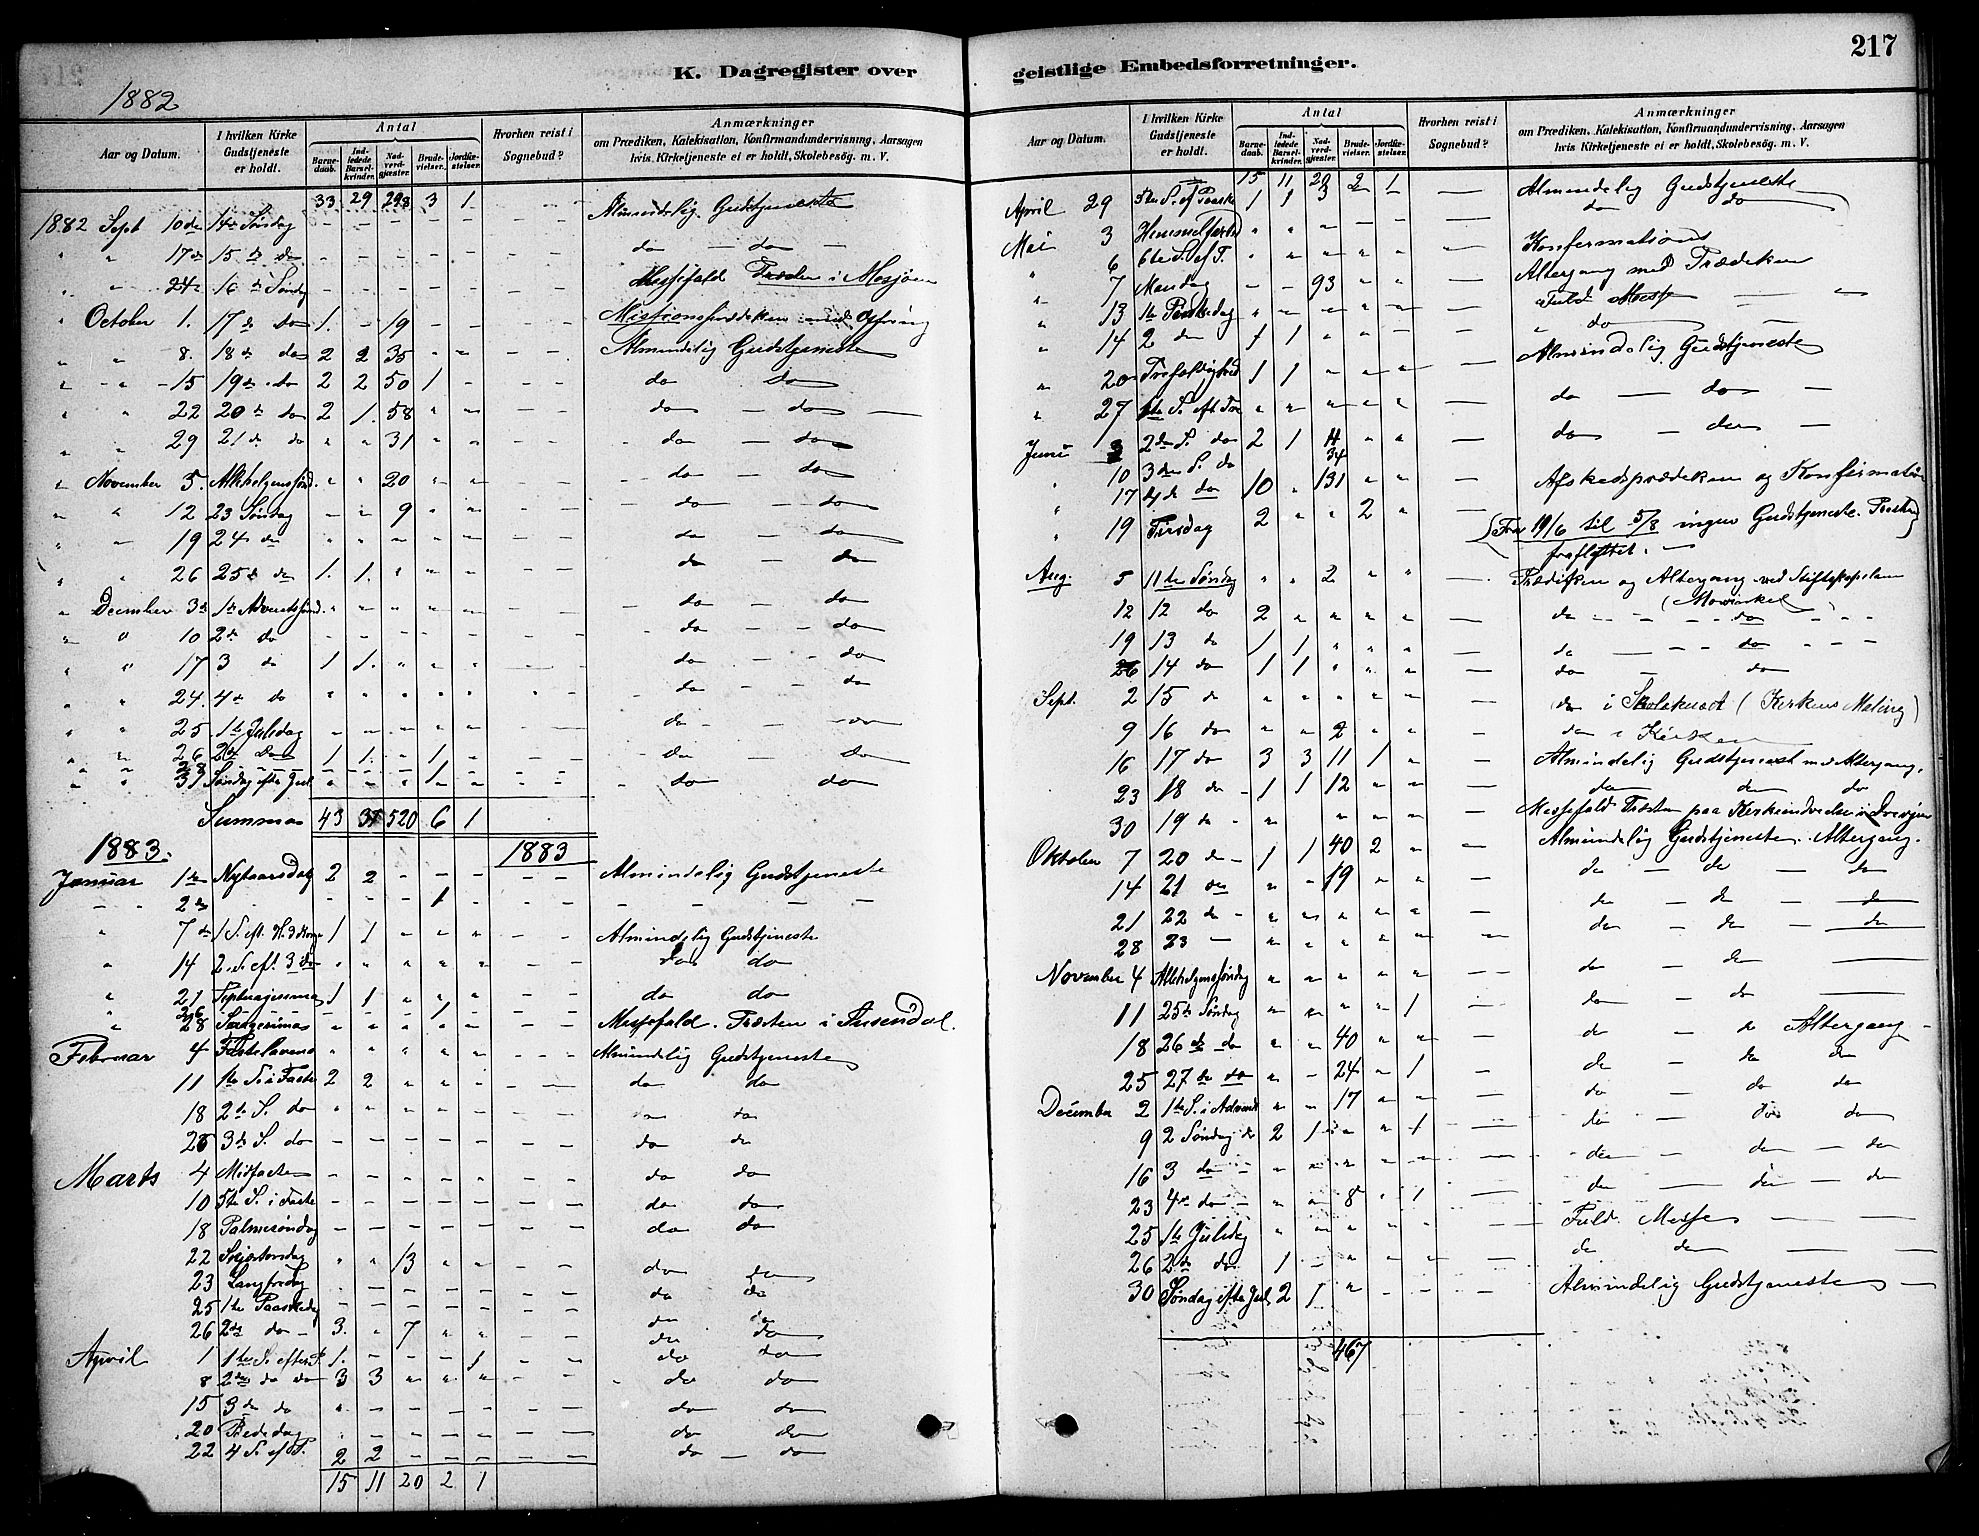 217
K. Dagregister over geistlige Embedsforretninger.
1882
Aar og Datum. I hvilken Kirke Gudstjeneste er holdt. Antal Barnedaab. Indledede Barselkvinder. Nadverdgjæster. Brudevielser. Jordfæstelser. Hvorhen reist i Sognebud? Anmærkninger om Prædiken, Katekisation, Konfirmandundervisning, Aarsagen hvis Kirketjeneste ei er holdt, Skolebesøg. m. V.
33 29 298 3 1
1882 Sept 10de 14de Søndag - - - - - Almindelig Gudstjeneste
" " 17de 15de do - - - - - do - do -
" " 24de 16de Søndag - - - - - Messefald Præsten i Mosjøen
" October 1. 17de do 1. - 19 - - Missionsprædiken med Offring
" " 8. 18de do 2 2 35 " " Almindelig Gudstjeneste
" " 15 19de do 2 2 50 1 - do do
" " 22 20de do 2 1. 58 " " do - do -
" " 29 21de do " " 31 " " do - do
" November 5. Allehelgenssønd. " " 20 " " do - do
" " 12 23 Søndag - - 9 " " do - do
" " 19 24 do " " " " " do - do
" " 26 25de do 1. 1. " " " do - do
" December 3de 1ste Adventssønd. " " " " " do - do
" " 10 2de do - - - - - do - - do
" " 17 3 do 1 1. " " " do - - do
" " 24. 4de do " " " " " do - - do
" " 25. 1ste Juledag - - - - - do - - do
" " 26 2den do 1 1. " 1 " do - do
" " 28 - - - - 1
" " 31 Søndag efter Jul " " " " " do do
Summa 43 35 520 6 1
1883. 1883
Januar 1ste Nytaarsdag 2 2 - - - Almindelig Gudstjeneste
" " 2de . . . 1 - - - -
" 7de 1 S. eft. H. 3 Konge 1 1 " " " Almindelig Gudstjeneste
" 14 2. S. eft. 3 do " " " " " do do
" 21 Septuagesima 1 1 " " " do do
26 - - - 1 -
" 28 Sexagesima " " " " " Messefald. Præsten i Susendal.
Februar 4 Fastelavens " " " " " Almindelig Gudstjeneste
11 1ste S. i Faste 2 2 " " " do do
18 2de S. do " " " " " do do
25 3de S. do - - - - - do do
Marts 4 Midfaste - - - - - do do
10 5te S. i Faste - - - - - do do
18 Palmesøndag - - - - - do do
22 Skjærtorsdag " " 13 " " do do
23 Langfredag - - - - - do do
25 1ste Paaskedag - - - - - do do
26 2de do - 3. " 7 " " do do
April 1 1ste S. efter P. 1. - - - 1 do do
8 2de do do 3 3 " " " do do
15 3 do do " - - - - do do
20 Bededag " - - - - do do
22 4 S. ef P. 2 2 - - - do - do
15 11 20 2 1
Aar og Datum. I hvilken Kirke Gudstjeneste er holdt. Antal Barnedaab. Indledede Barselkvinder. Nadverdgjæster. Brudevielser. Jordfæstelser. Hvorhen reist i Sognebud? Anmærkninger om Prædiken, Katekisation, Konfirmandundervisning, Aarsagen hvis Kirketjeneste ei er holdt, Skolebesøg. m. V.
15 11 20 2 1
April 29 5te S. ef Paaske 1 1 3 - - - Almindelig Gudstjeneste
Mai 3 Himmelfartsd " " - - - - do do
" 6 6te S. ef P. " " " " " - Konfirmation
" 7 Mandag - - 93 " " - Altergang med Prædiken
" 13 1ste Pintsedag " " " " " - Fuld Messe - "
" 14 2 do 1 1 " - - - " do -
" 20 Trefoldighed 1 1 - " " - Almindelig Gudstjeneste
" 27 1ste S. eft Tre " " " " " - do - do -
Juni 3 2de S. do 2 1 4 " " - do - do -
" 10 3de S. do 34
" 17 4de do 10 " 131 " " - Afskedsprædiken og Konfirmation
" 19 Tirsdag 2 " " 2 " - (Fra 19/6 til 5/8 ingen Gudstjeneste.
fraflyttet. -
Aug. 5 11te Søndag " " 2 " " - Prædiken og Altergang ved Stiftskapelan
(Mowinkel)
12 12 do 2 " " " " - do - - - do - - -
19 13 do 1 1 " " " - do - - - do - - -
26 14 do 1 1 " " " - do - do
Sept. 2 15 do " " " " " - do i Skolehuset (Kirkens Maling)
9 16 do " " 2 " " - do i Kirken
16 17 do 3 3 11 1 " - Almindelig Gudstjenest med Altergang.
23 18 do - 1 1 12 " " - do do do
30 19 do - " " " " - Messefald Præsten paa Kirkeindvielse i Drevjen
Oktober 7 20 do - 1 1 40 2 " - Almindelig Gudstjeneste. Altergang.
14 21 do " - 19 " " - do - do - do
21 22 do - " " " " " - do - do - do
28 23 - " " " " " - do - do - do
November 4 Allehelgenssøndag " " " " " - do - do -
11 25de Søndag " " " " 1 - do - do -
18 26de do " " 40 " " - do - do Altergang -
25 27de do " - 24 " 1 - do - do do
December 2 1ste S. i Advent " " 17 " " - do - do do
9 2 Søndag do 2 1 " " 1 - do - do do
16 3 do - " " " " - - do - do - do
23 4de do - " " 8 " 1 - do - do - do
25 1ste Juledag " " " " " - Fuld Messe - -
26 2de do 1 - " " " - do do -
30 Søndag efter Jul 2 1 " - - - Almindelig Gudstjeneste -
467